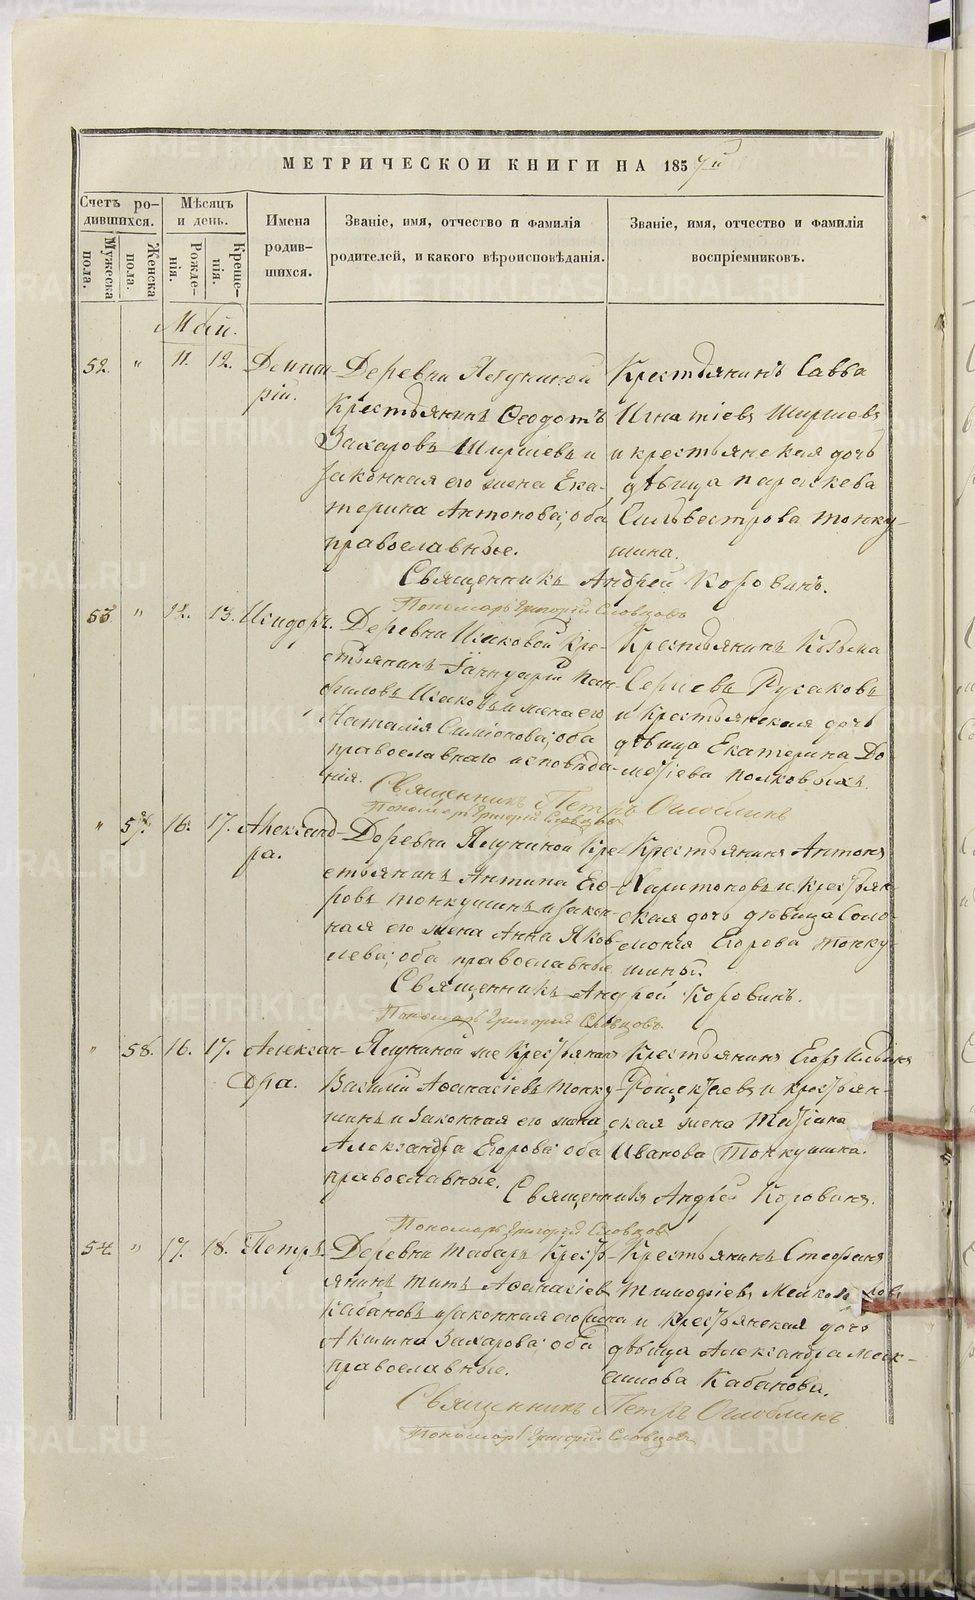 МЕТРИЧЕСКОЙ КНИГИ НА 1857й
Счетъ родившихся.
Мужеска пола.
Женска пола.
Мѣсяцъ и день.
Рожденія.
Крещенія.
Имена родившихся.
Званіе, имя, отчество и фамилія
родителей, и какого вѣроисповѣданія.
Званіе, имя, отчество и фамилія
воспріемниковъ.
Май.
52. " 11. 12. Димитрій.
Деревни Ялуниной
Крестьянинъ Ѳеодотъ
Захаровъ Ширшевъ и
законная его жена Ека-
терина Антонова; оба
православные.
Крестьянинъ Савва
Игнатіевъ Ширшевъ
и крестьянская дочь
дѣвица Параскева
Сильвестрова Тонку-
шина.
Священникъ Андрей Коровинъ.
Пономарь Григорій Словцовъ
53. " 12. 13. Исидоръ.
Деревни Исаковой Кре-
стьянинъ Іаннуарій Пан-
филовъ Исаковъ и жена его
Наталія Симіонова; оба
православнаго исповѣда-
нія.
Крестьянинъ Козьма
Сергіевъ Русаковъ
и крестьянская дочь
дѣвица Екатерина До-
метіева Полковыхъ.
Священникъ Петръ Оглоблинъ
Пономарь Григорій Словцовъ
" 57. 16. 17. Александ-
ра.
Деревни Ялуниной Кре-
стьянинъ Антипа Его-
ровъ Тонкушинъ и закон-
ная его жена Анна Яков-
лева; оба православные
Крестьянинъ Антонъ
Харитоновъ и крестьян-
ская дочь дѣвица Соло-
монія Егорова Тонку-
шины.
Священникъ Андрей Коровинъ.
Пономарь Григорій Словцовъ.
" 58. 16. 17. Алексан-
дра.
Ялуниной же Крестьянинъ
Василій Аѳанасіевъ Тонку-
шинъ и законная его жена
Александра Егорова; оба
православные.
Крестьянинъ Егоръ Ильинъ
и крестьян-
ская жена Татіана
Иванова Тонкушина.
Священникъ Андрей Коровинъ.
Пономарь Григорій Словцовъ
54. " 17. 18. Петръ.
Деревни Табаръ Кресть-
янинъ Титъ Аѳанасіевъ
Кабановъ и законная его жена
Акилина Захарова; оба
православные.
Крестьянинъ Стефанъ
Тимофіевъ
и крестьянская дочь
дѣвица Александра Мак-
симова Кабанова.
Священникъ Петръ Оглоблинъ
Пономарь Григорій Словцовъ
METRIKI.GASO-URAL.RU